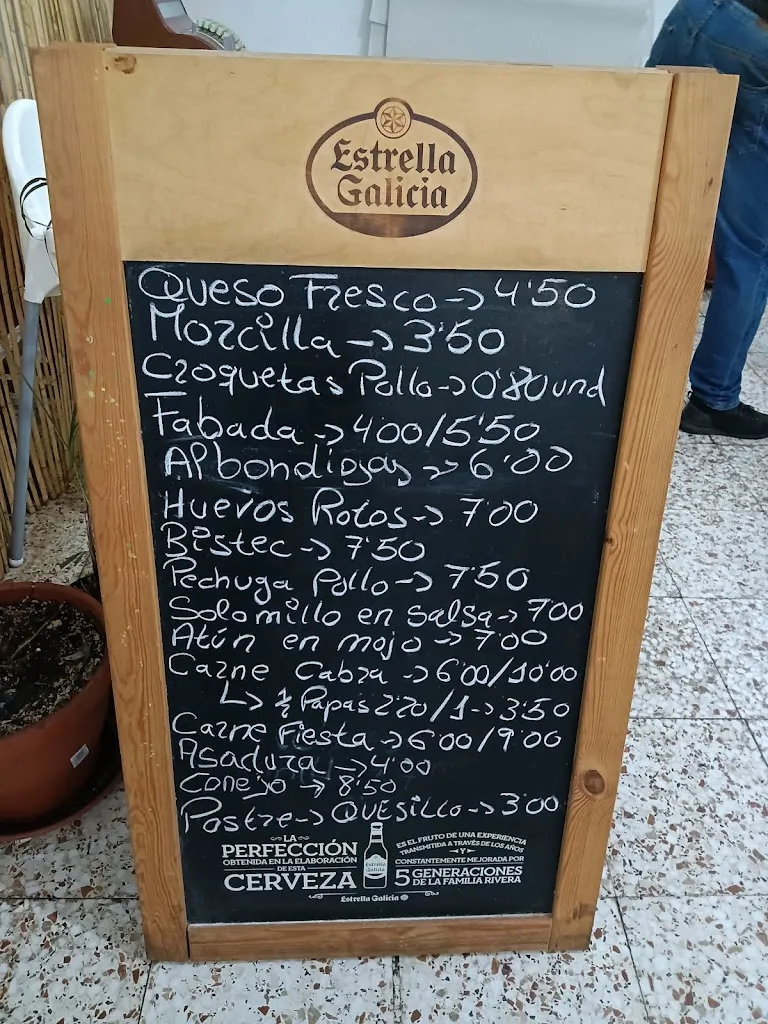 Estrella
Galicia
Queso Fresco -> 4'50
Morcilla -> 3'50
Croquetas Pollo -> 0'80 und
Fabada -> 4'00/5'50
Albondigas -> 6'00
Huevos Rotos -> 7'00
Bistec -> 7'50
Pechuga Pollo -> 7'50
Solomillo en salsa -> 7'00
Atún en mojo -> 7'00
Carne Cabra -> 6'00/10'00
↳ ½ Papas 2'20/1 -> 3'50
Carne Fiesta -> 6'00/9'00
Asadura -> 4'00
Conejo -> 8'50
Postre -> QUESillo -> 3'00
LA
PERFECCIÓN
OBTENIDA EN LA ELABORACIÓN
DE ESTA
CERVEZA
Estrella
Galicia
ES EL FRUTO DE UNA EXPERIENCIA
TRANSMITIDA A TRAVÉS DE LOS AÑOS
Y
CONSTANTEMENTE MEJORADA POR
5 GENERACIONES
DE LA FAMILIA RIVERA
Estrella Galicia